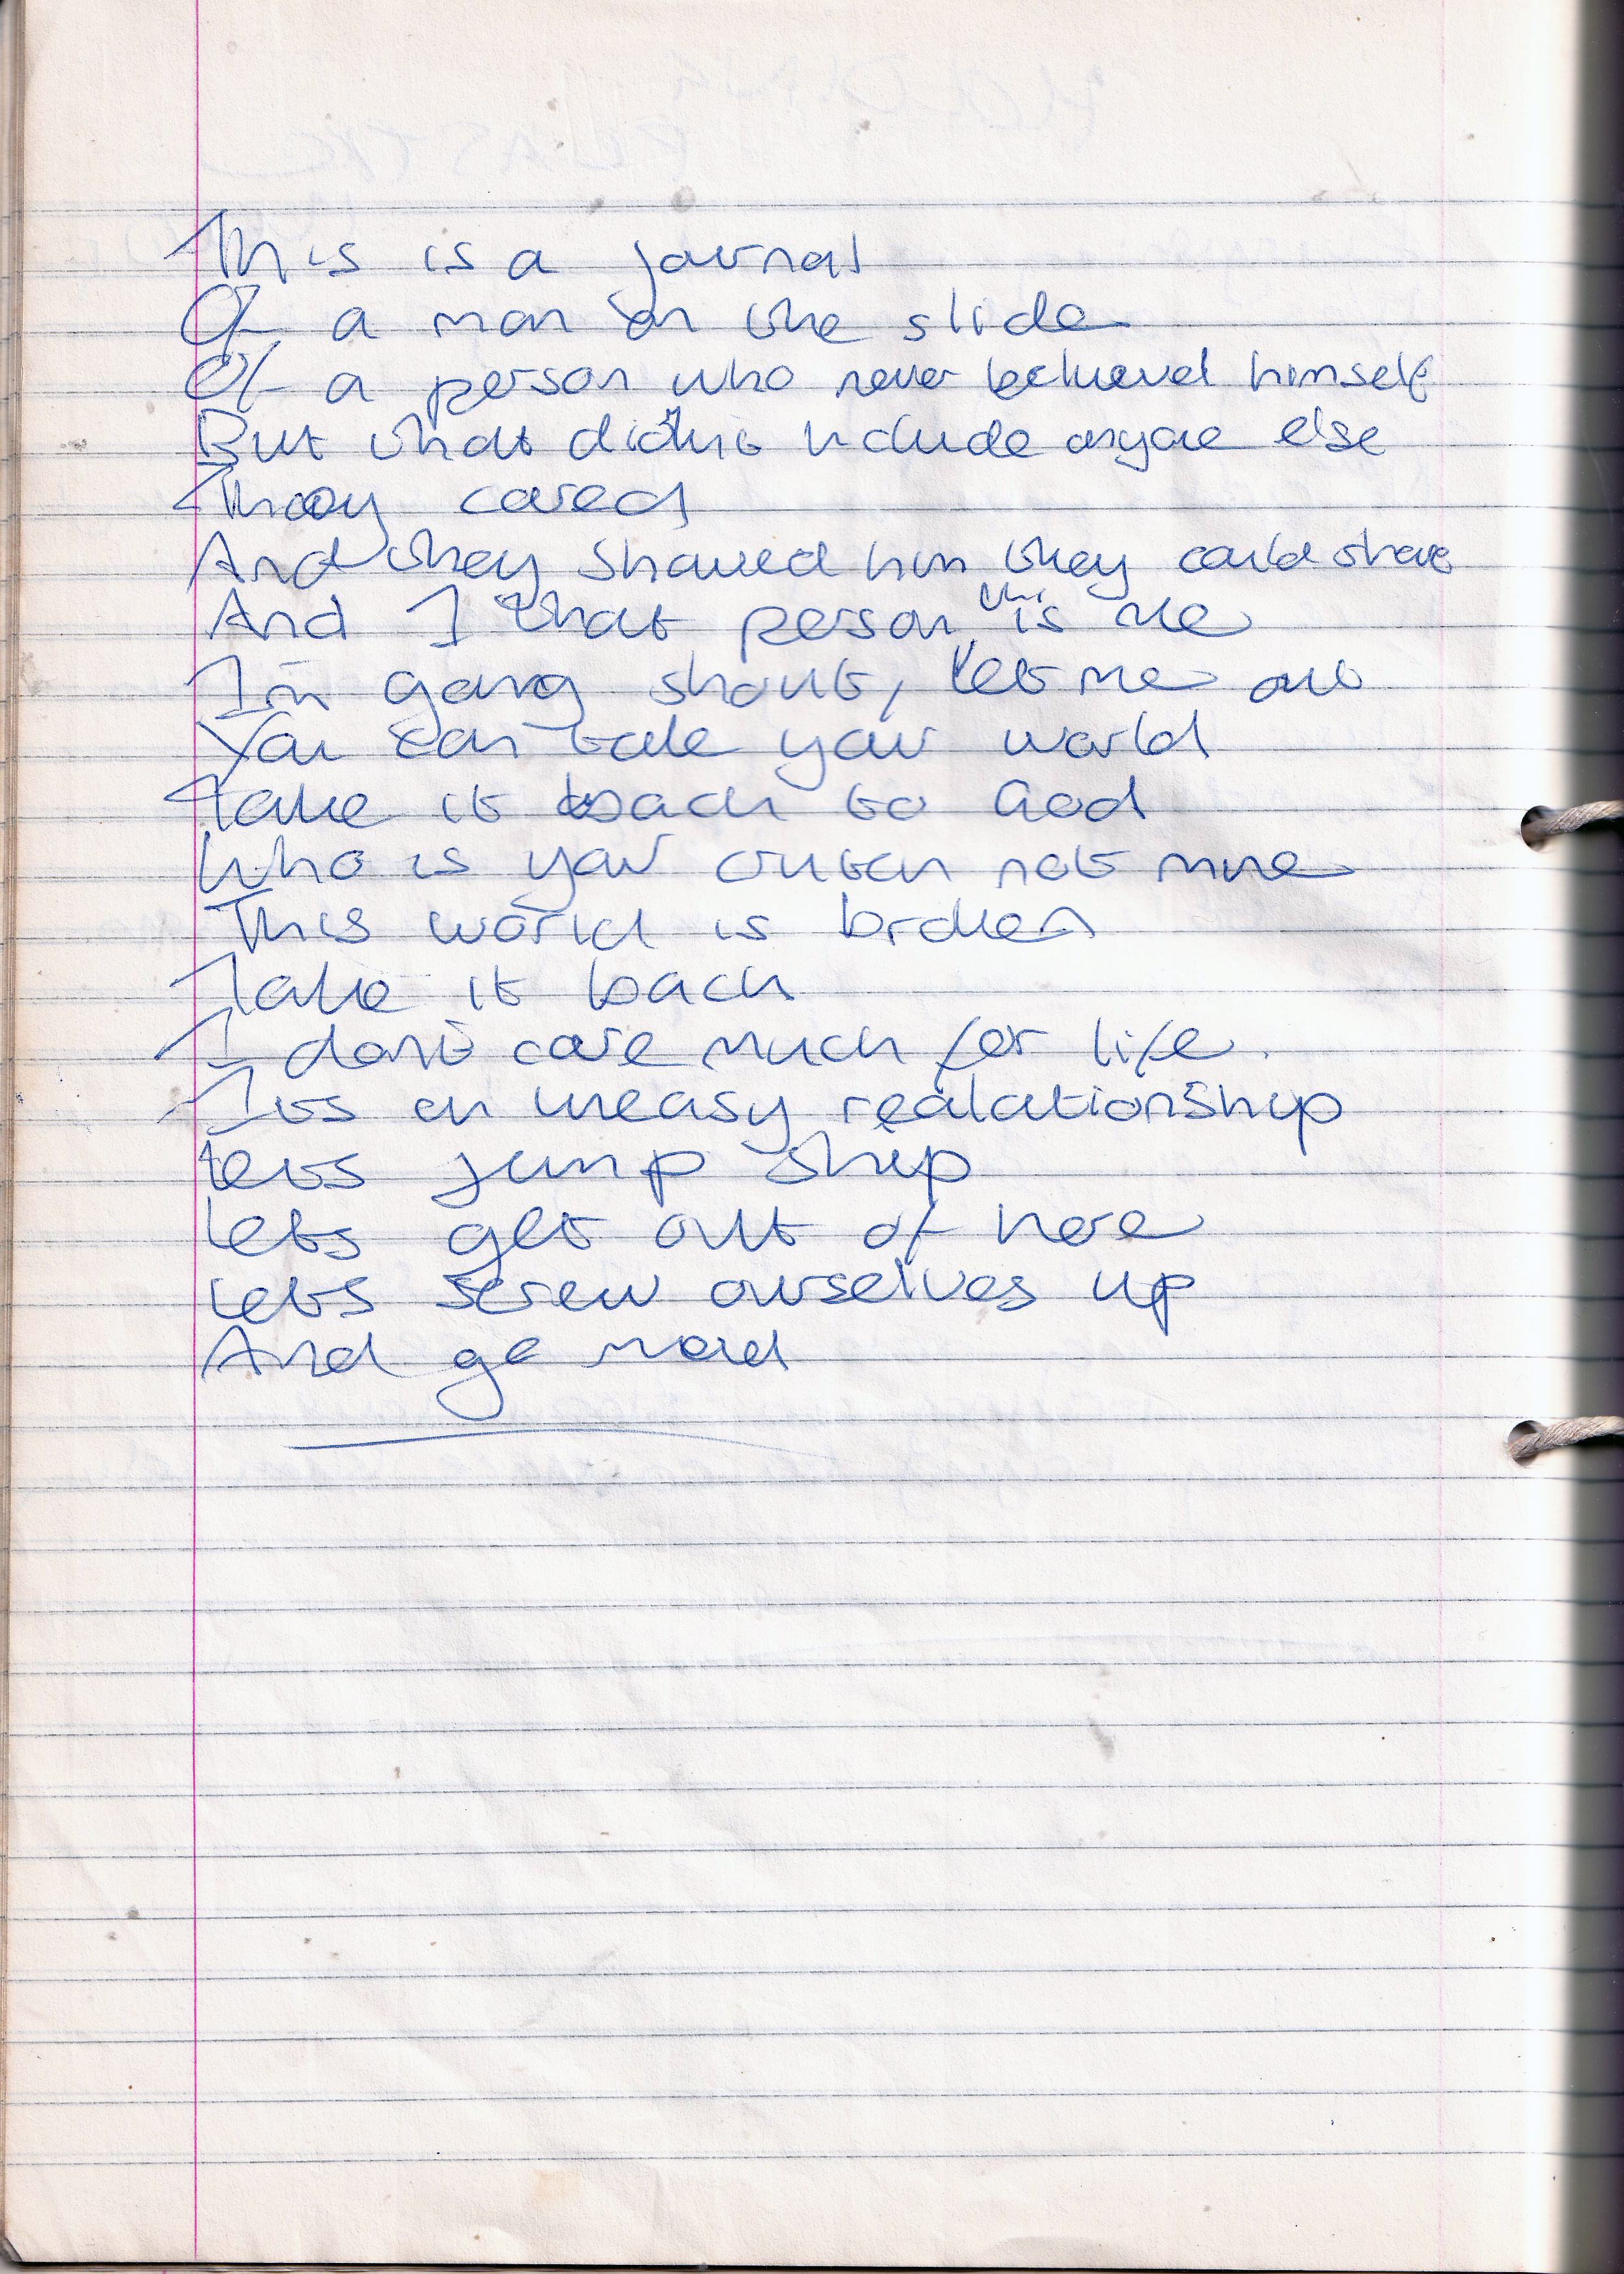 This is a journal
Of a man on the slide
Of a person who never believed himself
But that didn't include anyone else
They cared
And they showed him they could share
And I that person this is me
I'm going shout, let me out
You can take your world
Take it back to God
Who is your not mine
This world is broken
Take it back
I don't care much for life.
Its an uneasy realationship
Lets jump ship
Lets get out of here
Lets screw ourselves up
And go mad